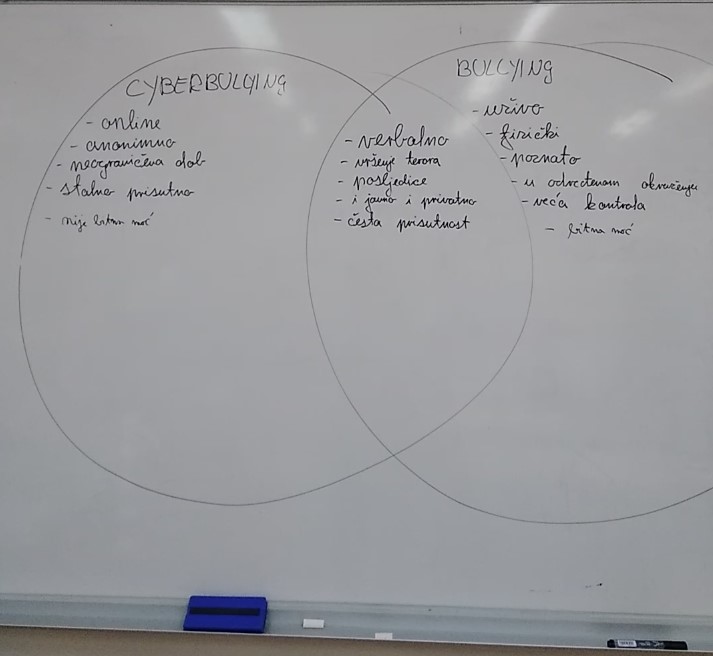 CYBERBULLYING
- online
- anonimno
- neograničena dob
- stalno prisutno
- nije bitna moć
- verbalno
- vršenje terora
- posljedice
- i javno i privatno
- česta prisutnost
BULLYING
- uživo
- fizički
- poznato
- u određenom okruženju
- veća kontrola
- bitna moć